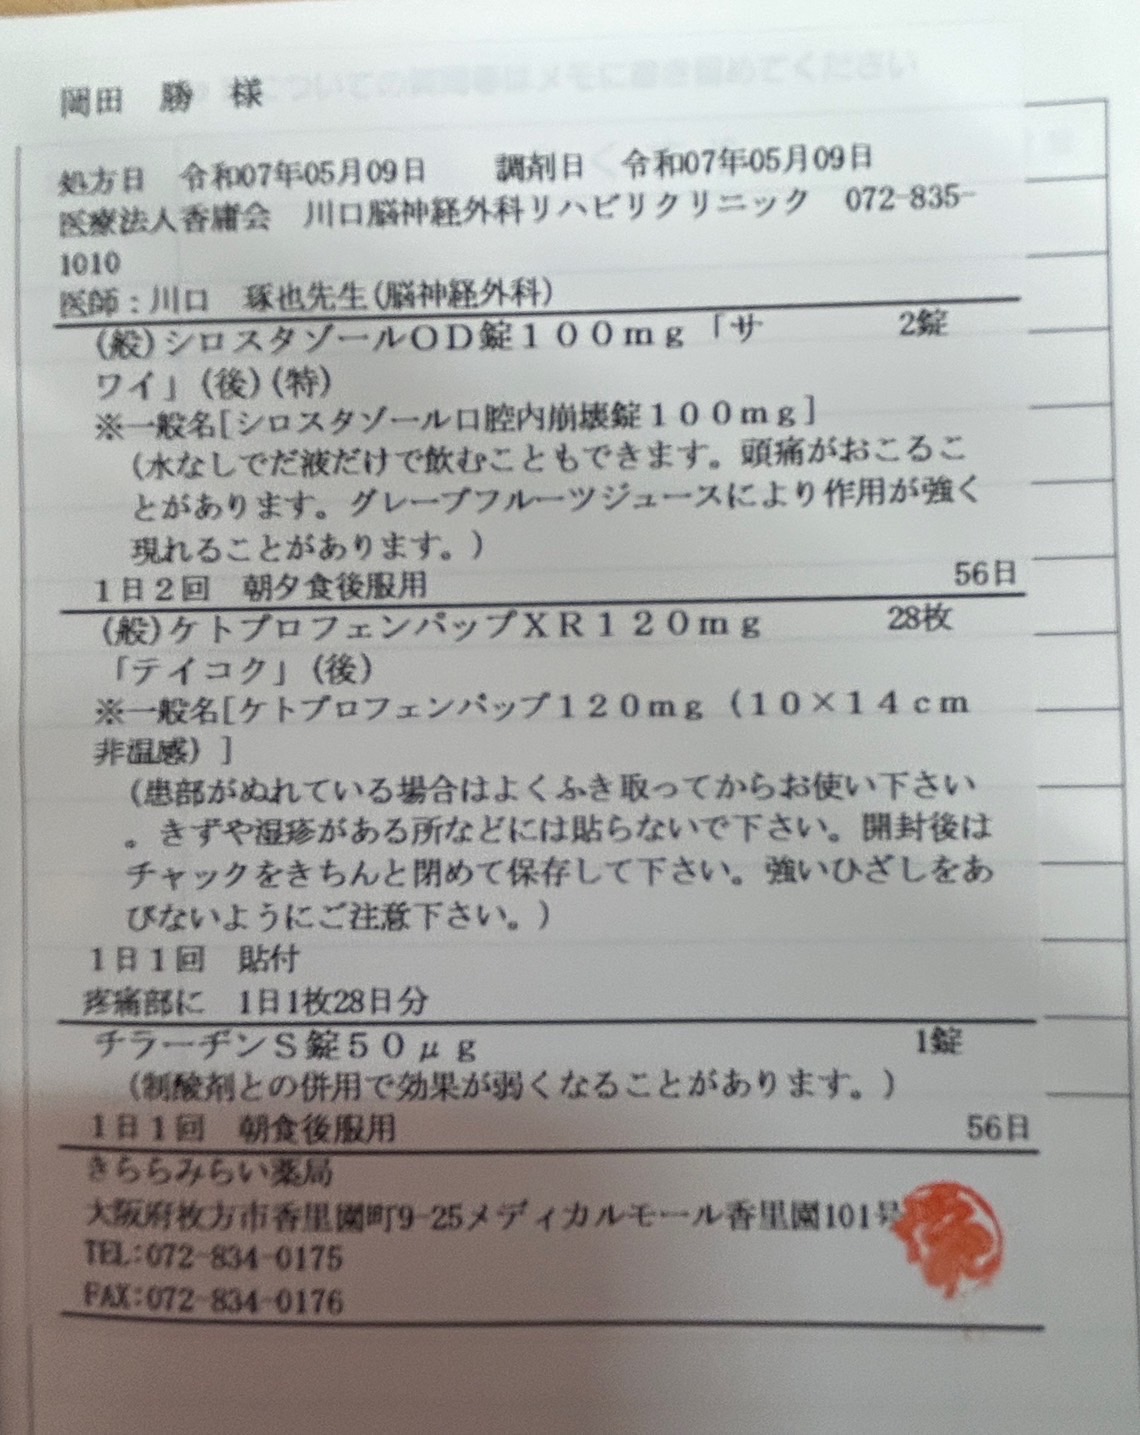 岡田 勝 様
処方日 令和07年05月09日 調剤日 令和07年05月09日
医療法人香庸会 川口脳神経外科リハビリクリニック 072-835-
1010
医師：川口 琢也先生(脳神経外科)
(般)シロスタゾールＯＤ錠１００ｍｇ「サ 2錠
ワイ」(後)(特)
※一般名[シロスタゾール口腔内崩壊錠１００ｍｇ]
(水なしでだ液だけで飲むこともできます。頭痛がおこるこ
とがあります。グレープフルーツジュースにより作用が強く
現れることがあります。)
１日２回 朝夕食後服用 56日
(般)ケトプロフェンパップＸＲ１２０ｍｇ 28枚
「テイコク」(後)
※一般名[ケトプロフェンパップ１２０ｍｇ（１０×１４ｃｍ
非温感）]
(患部がぬれている場合はよくふき取ってからお使い下さい
。きずや湿疹がある所などには貼らないで下さい。開封後は
チャックをきちんと閉めて保存して下さい。強いひざしをあ
びないようにご注意下さい。)
１日１回 貼付
疼痛部に 1日1枚28日分
チラーヂンＳ錠５０μｇ 1錠
(制酸剤との併用で効果が弱くなることがあります。)
１日１回 朝食後服用 56日
きららみらい薬局
大阪府枚方市香里園町9-25メディカルモール香里園101号
TEL:072-834-0175
FAX:072-834-0176